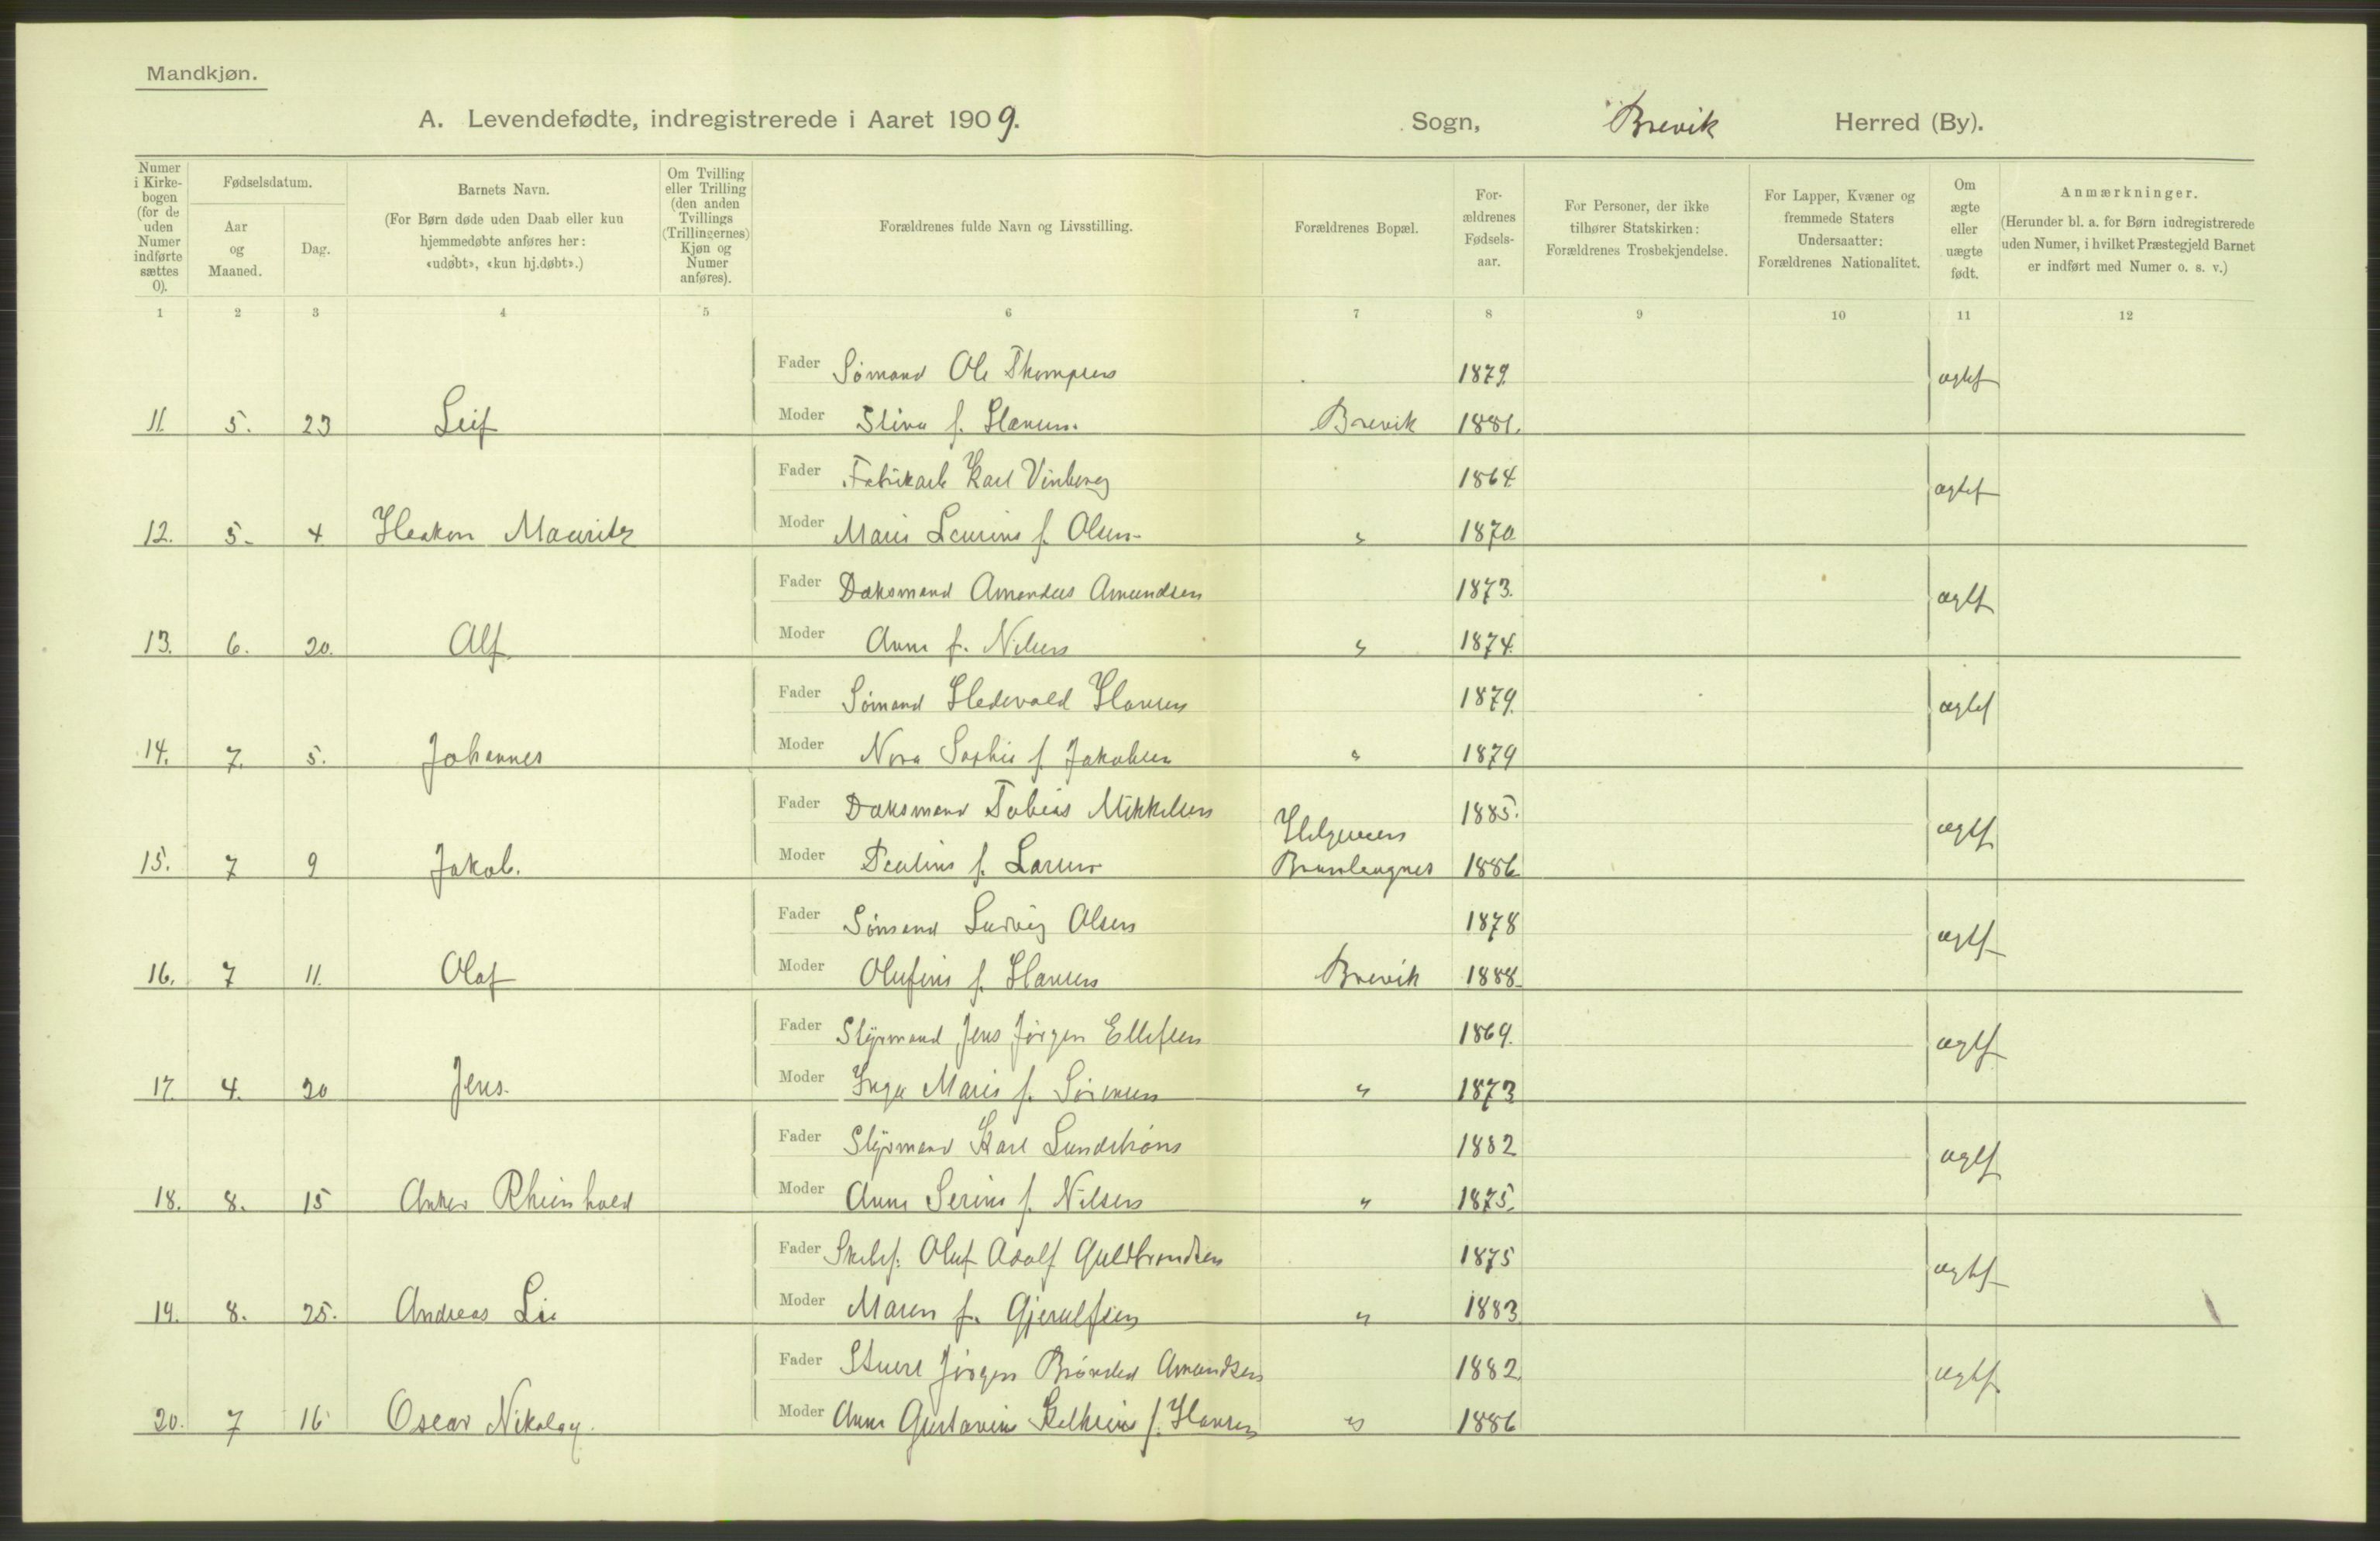 Mandkjøn.
A. Levendefødte, indregistrerede i Aaret 1909. Sogn, Brevik Herred (By).
Numer i Kirkebogen (for de uden Numer indførte sættes 0).
Fødselsdatum.
Aar og Maaned.
Dag.
Barnets Navn.
(For Børn døde uden Daab eller kun hjemmedøbte anføres her: «udøbt», «kun hj.døbt».)
Om Tvilling eller Trilling (den anden Tvillings (Trillingernes) Kjøn og Numer anføres).
Forældrenes fulde Navn og Livsstilling.
Forældrenes Bopæl.
Forældrenes Fødselsaar.
For Personer, der ikke tilhører Statskirken: Forældrenes Trosbekjendelse.
For Lapper, Kvæner og fremmede Staters Undersaatter: Forældrenes Nationalitet.
Om ægte eller uægte født.
Anmærkninger.
(Herunder bl. a. for Børn indregistrerede uden Numer, i hvilket Præstegjeld Barnet er indført med Numer o. s. v.)
1 2 3 4 5 6 7 8 9 10 11 12
Fader Sømand Ole Thompsen 1879 ægtef
11. 5. 23 Leif Moder Stina f. Hansen. Brevik 1881.
Fader Fabrikarb Karl Vinberg 1864 ægtef
12. 5. 4 Haakon Mauritz Moder Marie Laurine f. Olsen " 1870
Fader Daksmand Amandus Amundsen 1873. ægtf
13. 6. 20. Alf Moder Anna f. Nilsen " 1874.
Fader Sømand Hedevald Hansen 1879. ægtef
14. 7. 5. Johannes Moder Nora Sophie f. Jakobsen " 1879
Fader Daksmand Tobias Mikkelsen 1885. ægtf
15. 7 9 Jakob. Moder Pauline f. Larsen Brunlangnes 1886
Fader Sømand Ludvig Olsen 1878 ægtf
16. 7 11. Olaf Moder Olufine f. Hansen Brevik 1888.
Fader Styrmand Jens Jørgen Ellefsen 1869. ægtf
17 4. 20 Jens. Moder Inga Marie f. Sørensen " 1873
Fader Styrmand Karl Lundstrøm 1882 ægtf
18. 8. 15 Anker Rheinhold Moder Anna Serine f. Nilsen " 1875.
Fader Skibsf. Oluf Adolf Guldbrandsen 1875 ægtef
19. 8. 25. Andreas Lie Moder Maren f. Gjerulfsen " 1883
Fader Stuert Jørgen Brønsted Amundsen 1882 ægtf
20. 7 16 Oscar Nikolay. Moder Anna Gustavine f. Hansen " 1886